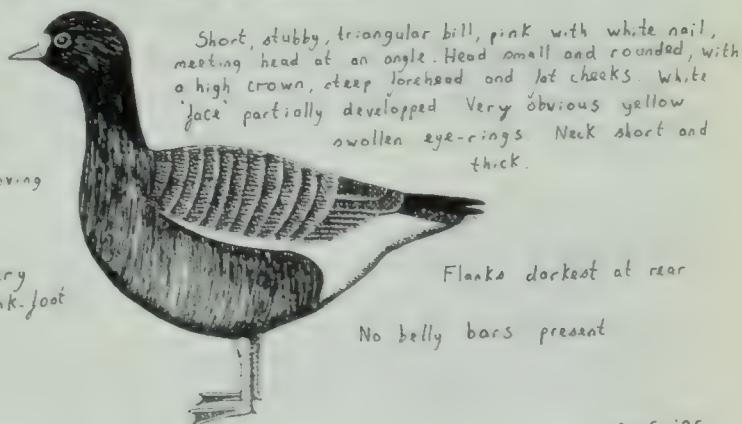 Short, stubby, triangular bill, pink with white nail,
meeting head at an angle. Head small and rounded, with
a high crown, steep forehead and fat cheeks. White
'face' partially developped Very obvious yellow
swollen eye-rings. Neck short and
thick.
Flanks darkest at rear
No belly bars present